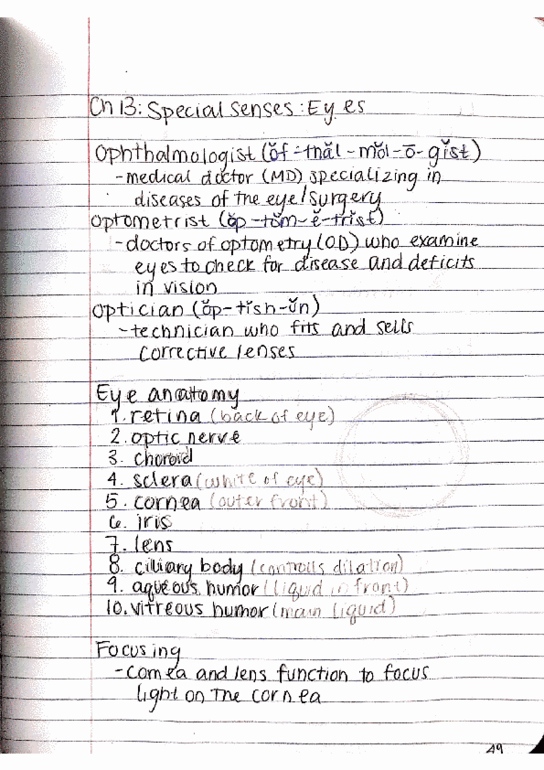 Ch 13: Special Senses: Eyes
Ophthalmologist (ŏf-thăl-mŏl-ō-gĭst)
-medical doctor (MD) specializing in
diseases of the eye/surgery
Optometrist (ŏp-tŏm-ĕ-trĭst)
-doctors of optometry (OD) who examine
eyes to check for disease and deficits
in vision
Optician (ŏp-tĭsh-ŭn)
-technician who fits and sells
corrective lenses
Eye anatomy
1. retina (back of eye)
2. optic nerve
3. choroid
4. sclera (white of eye)
5. cornea (outer front)
6. iris
7. lens
8. ciliary body (controlls dilation)
9. aqueous humor (liquid in front)
10. vitreous humor (main liquid)
Focusing
-cornea and lens function to focus
light on the cornea
A9